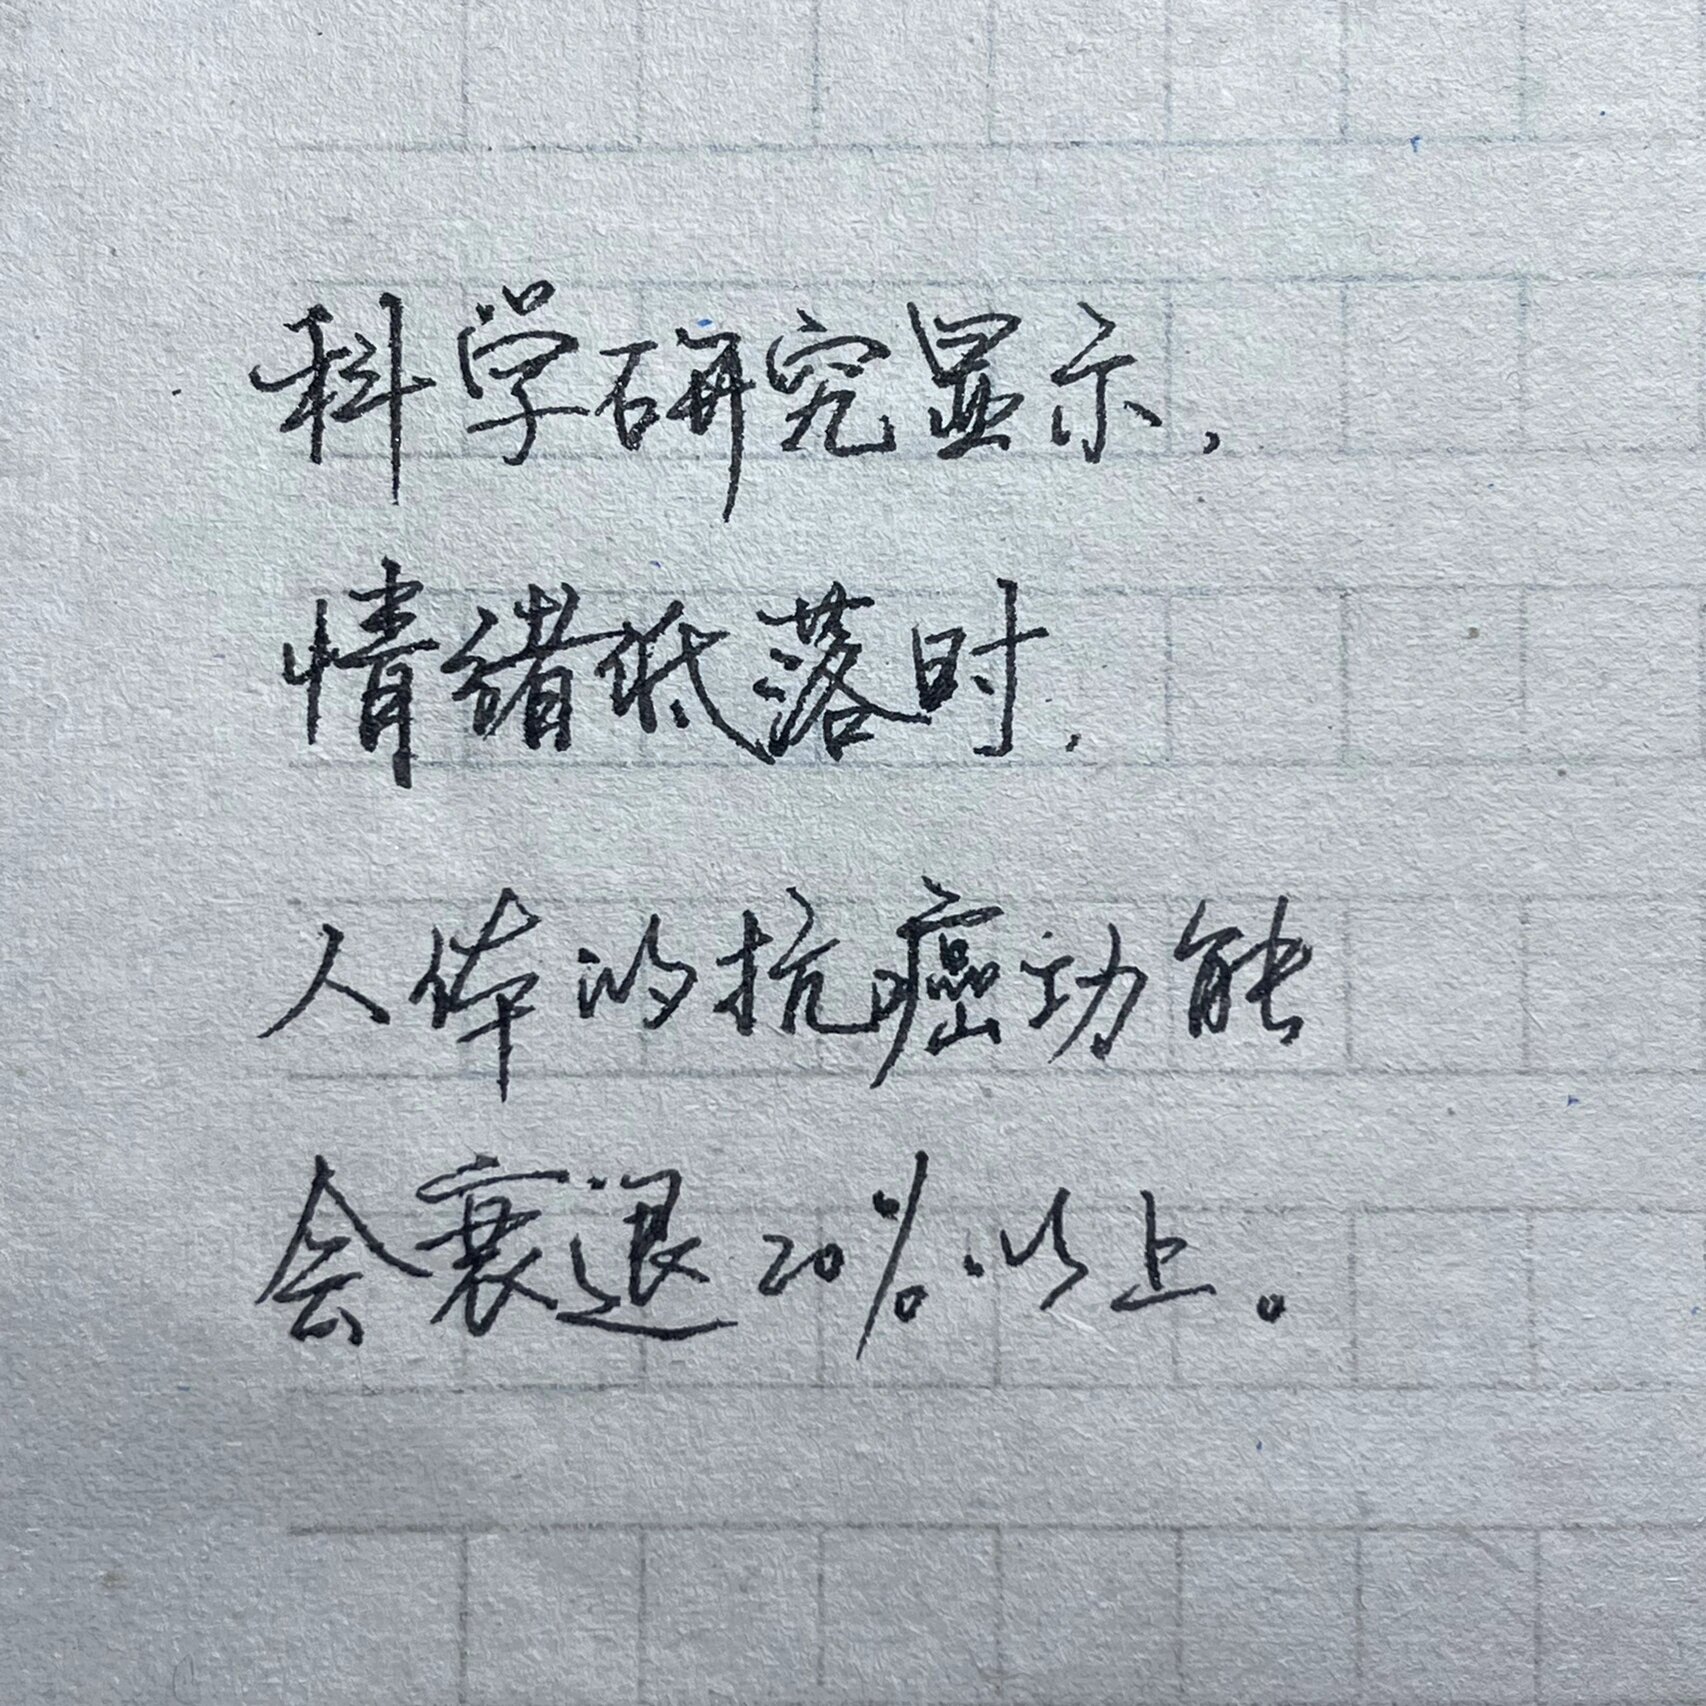 科学研究显示，
情绪低落时，
人体的抗癌功能
会衰退20%以上。